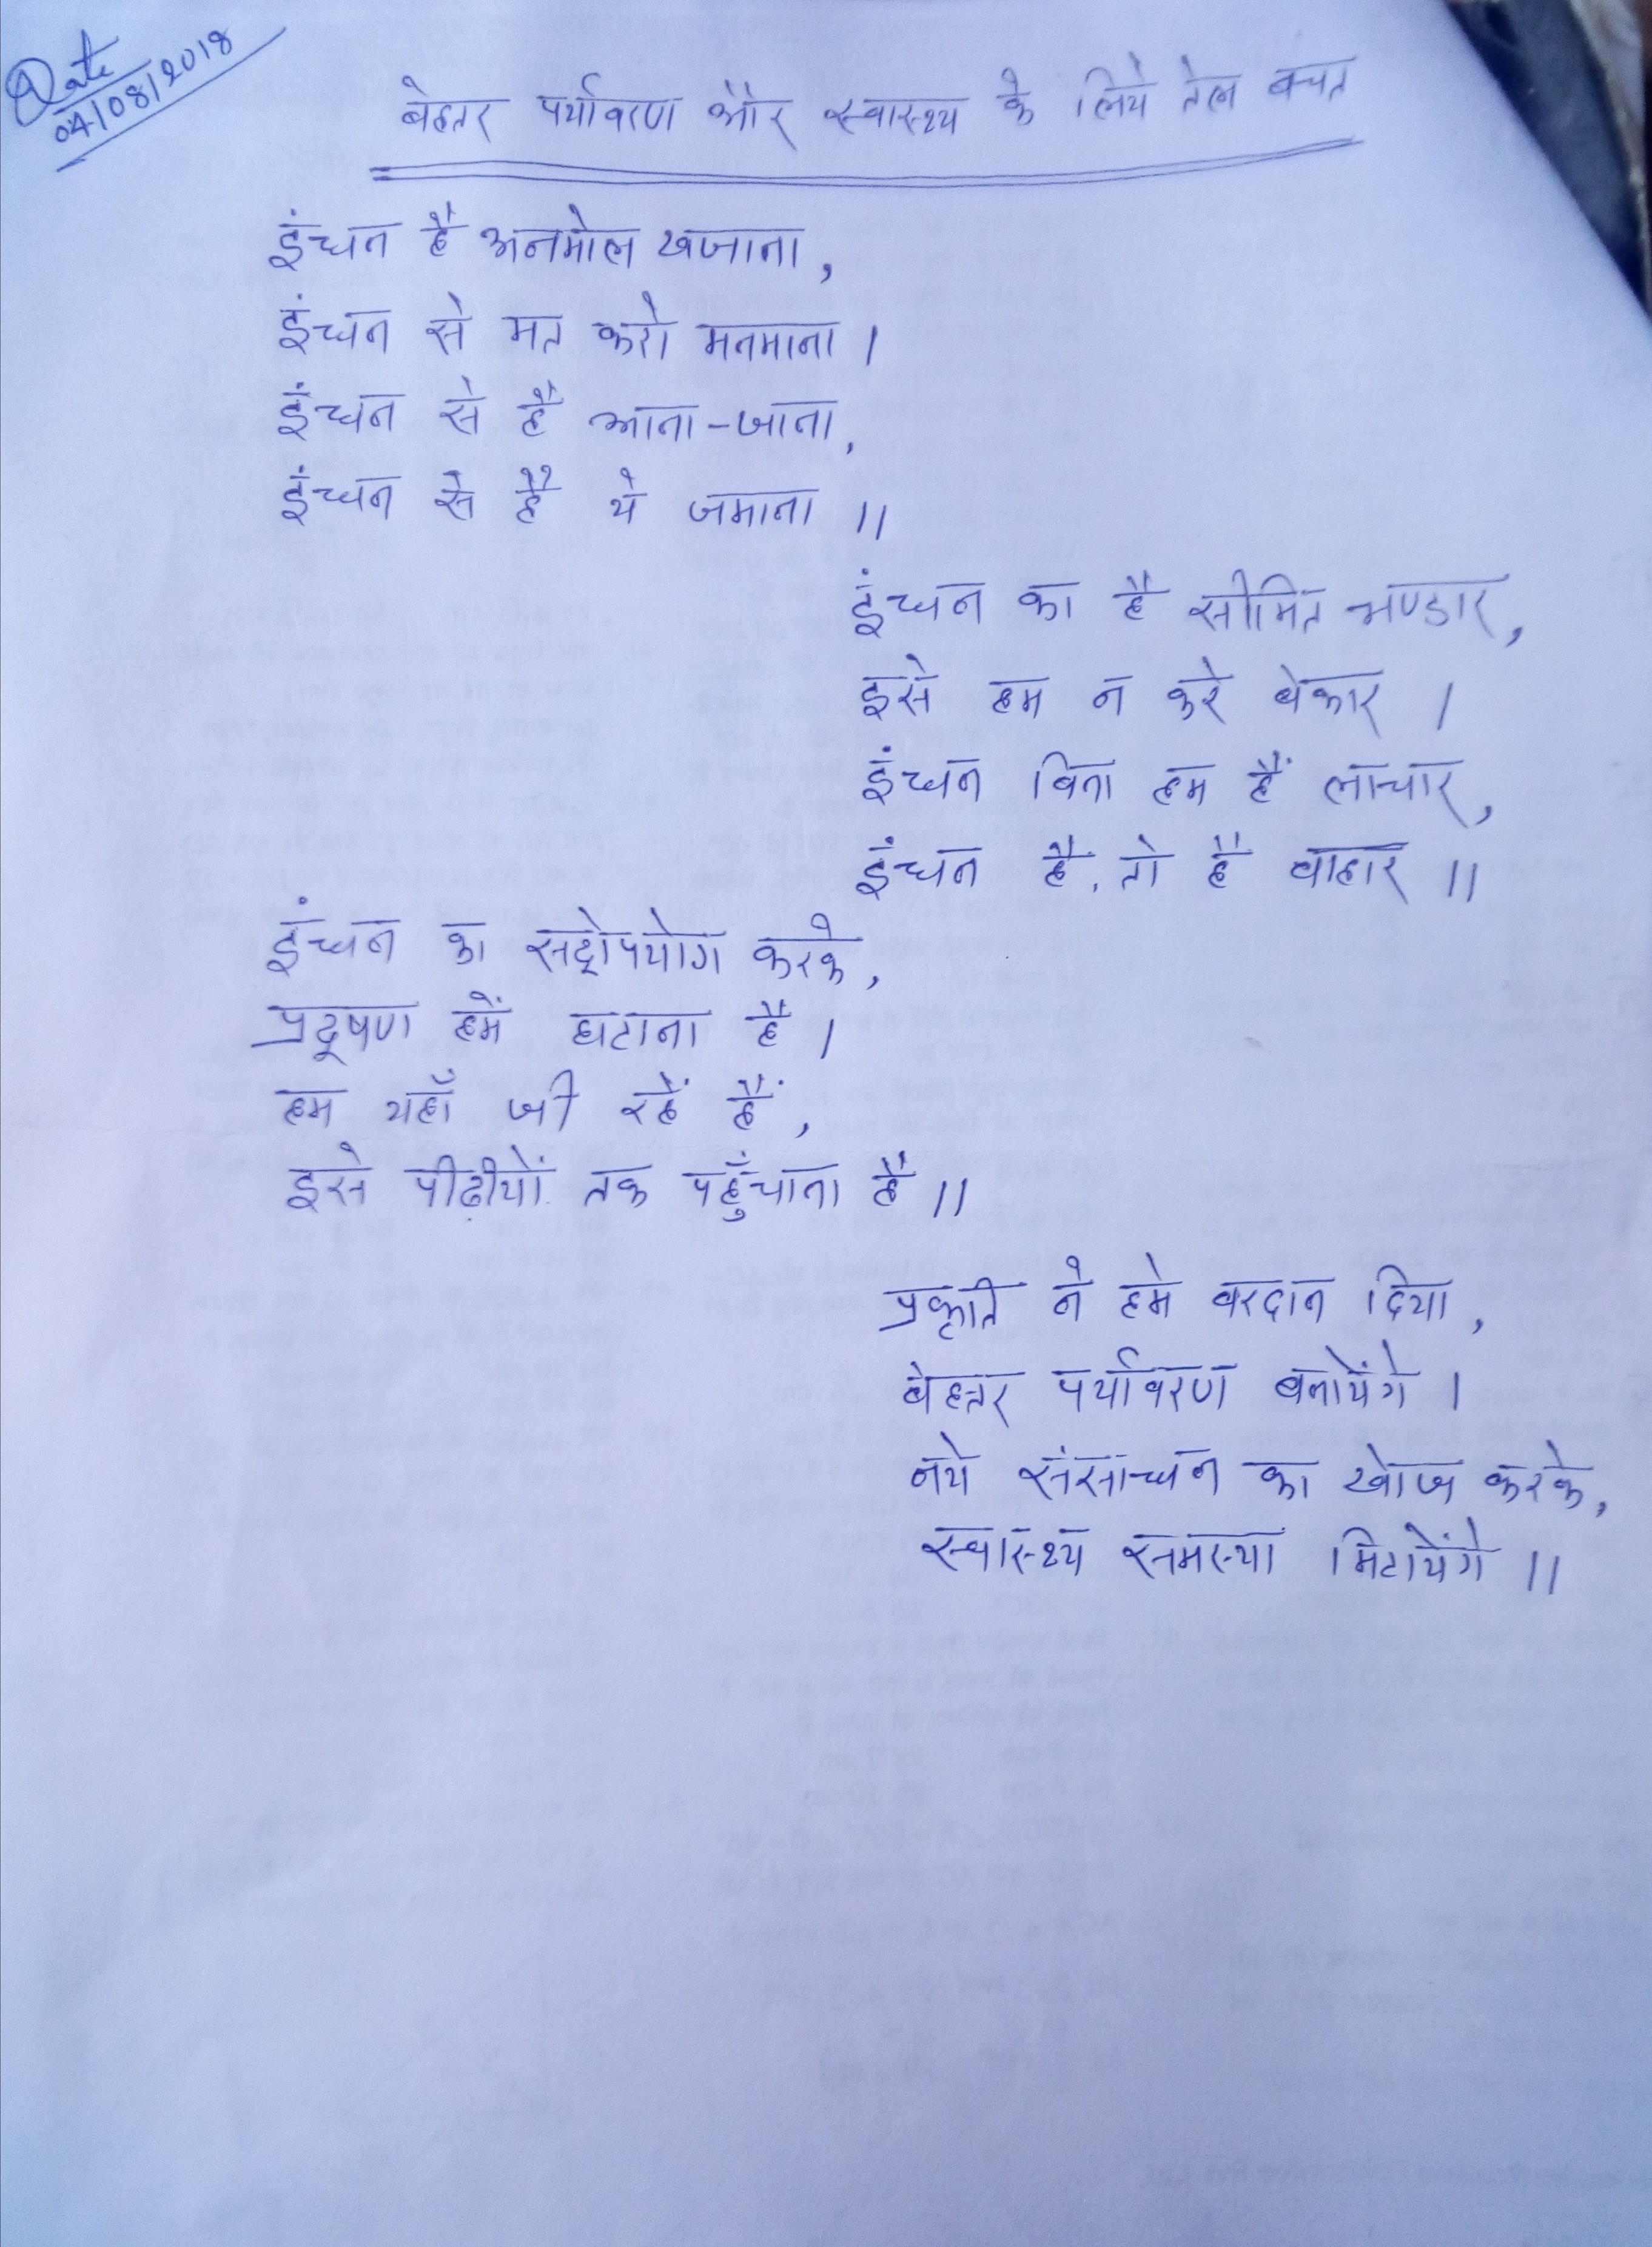 Date
04/08/2018
बेहतर पर्यावरण और स्वास्थ्य के लिये तेल बचत
इंधन है अनमोल खजाना,
इंधन से मत करो मनमाना।
इंधन से है आना-जाना,
इंधन से है ये जमाना॥
इंधन का है सीमित भण्डार,
इसे हम न करे बेकार।
इंधन बिना हम हैं लाचार,
इंधन है, तो है बाहार॥
इंधन का सद्दोपयोग करके,
प्रदूषण हमें घटाना है।
हम यहाँ जी रहें हैं,
इसे पीढ़ीयों तक पहुँचाना है॥
प्रकृति ने हमे वरदान दिया,
बेहतर पर्यावरण बनायेंगे।
नये संसाधन का खोज करके,
स्वास्थ्य समस्या मिटायेंगे॥